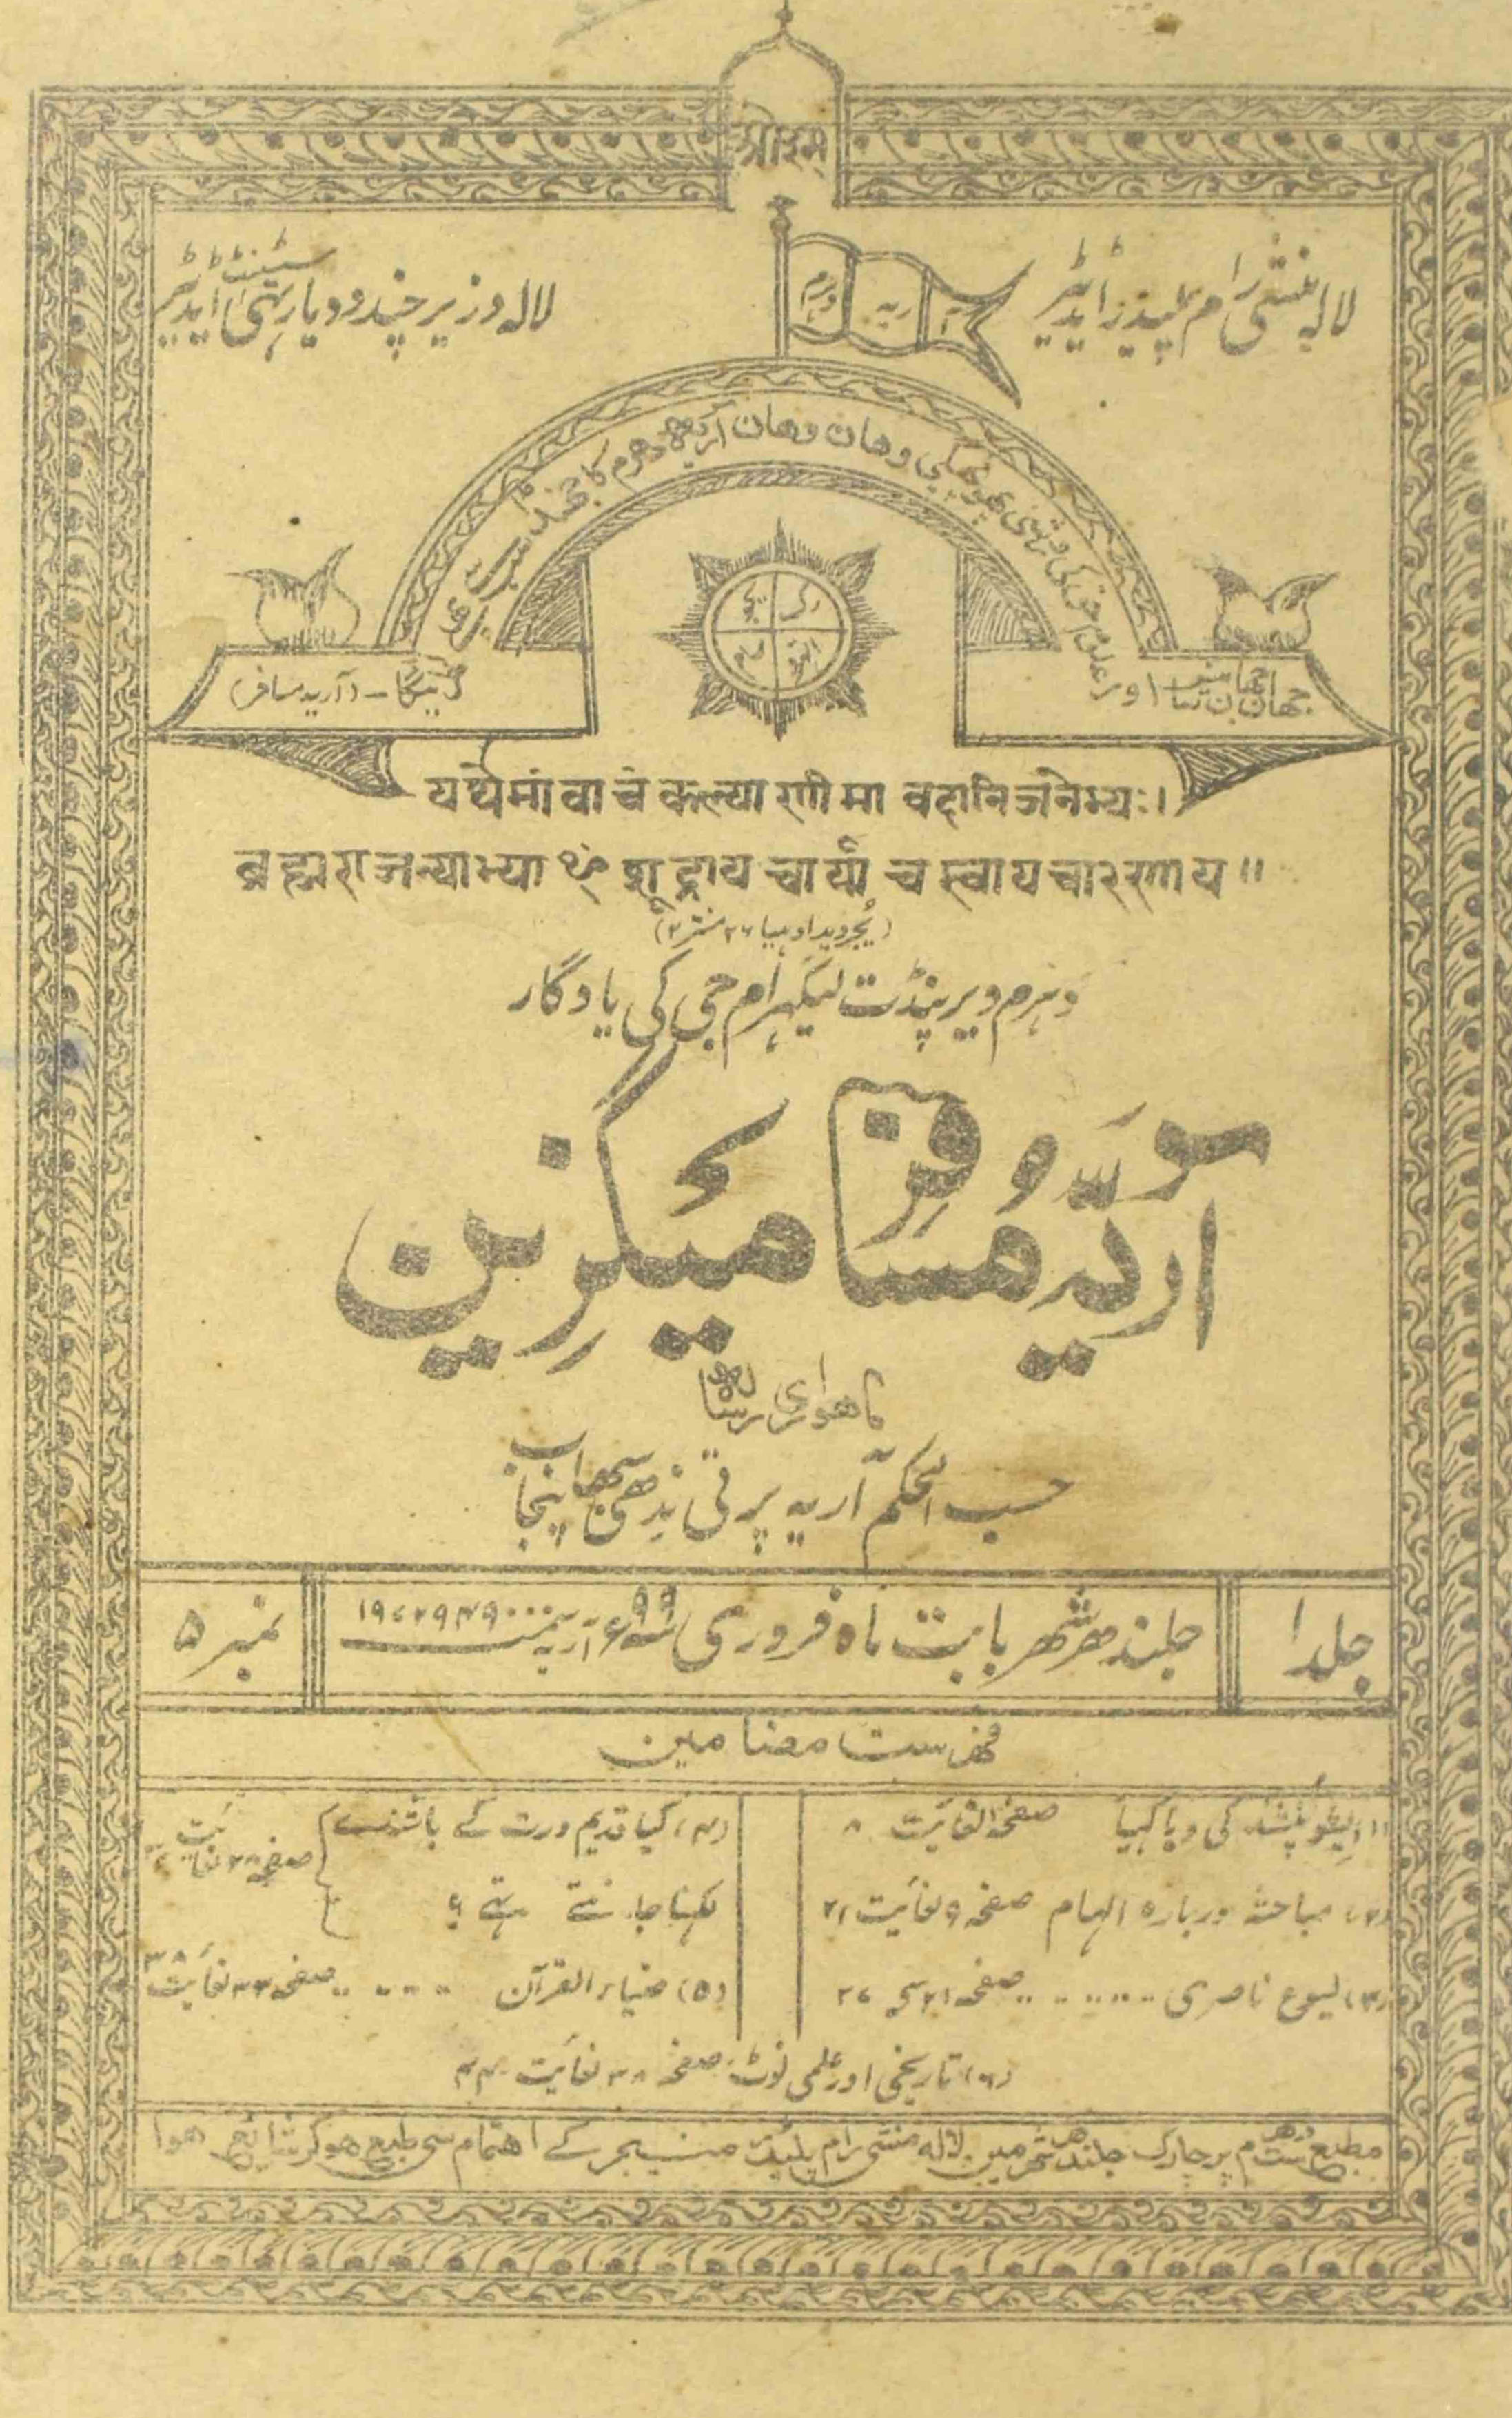 ओ३म्
لالہ منشی رام پلیڈر ایڈیٹر
لالہ وزیر چند ودیارتھی اسسٹنٹ ایڈیٹر
آریہ دھرم
جہان جہان سائنس اور علوم حقہ کی روشنی پہونچیگی وہان وہان آریہ دھرم کا جھنڈا
(آریہ مسافر)
رگ یجر
سام اتھرو
यथेमां वाचं कल्याणीमा वदानि जनेभ्यः।
ब्रह्मराजन्याभ्या ꣳ शूद्राय चार्याय च स्वाय चारणाय॥
(یجروید ادہیا ۲۶ منتر ۲)
دہرم ویر پنڈت لیکہرام جی کی یادگار
آریہ مسافر میگزین
ماھواری رسالہ
حسب الحکم آریہ پرتی ندھی سبھا پنجاب
جلد ۱
جلندھر شھر بابت ماہ فروری ۹۹ء آریہ سمت ۱۹۷۲۹۴۹۰۰۰
نمبر ۵
فھرست مضامین
(۱) ایشوپنشد کی ویاکہیا صفحہ ۱ لغایت ۸
(۲) مباحثہ دربارہ الہام صفحہ ۹ لغایت ۲۱
(۳) یسوع ناصری .. .. .. صفحہ ۲۱ سے ۲۷
(۴) کیا قدیم ورت کے باشندے
لکہنا جانتے تہے ؟
صفحہ ۲۸ لغایت
(۵) ضیاء القرآن .. .. .. صفحہ ۳۳ لغایت ۳۸
(۶) تاریخی اور علمی نوٹ صفحہ ۳۸ لغایت ۴۴
مطبع ست دھرم پرچارک جلندھر شھر مین لالہ منشی رام پلیڈر منیجر کے اھتمام سے طبع ھوکر شائع ھوا